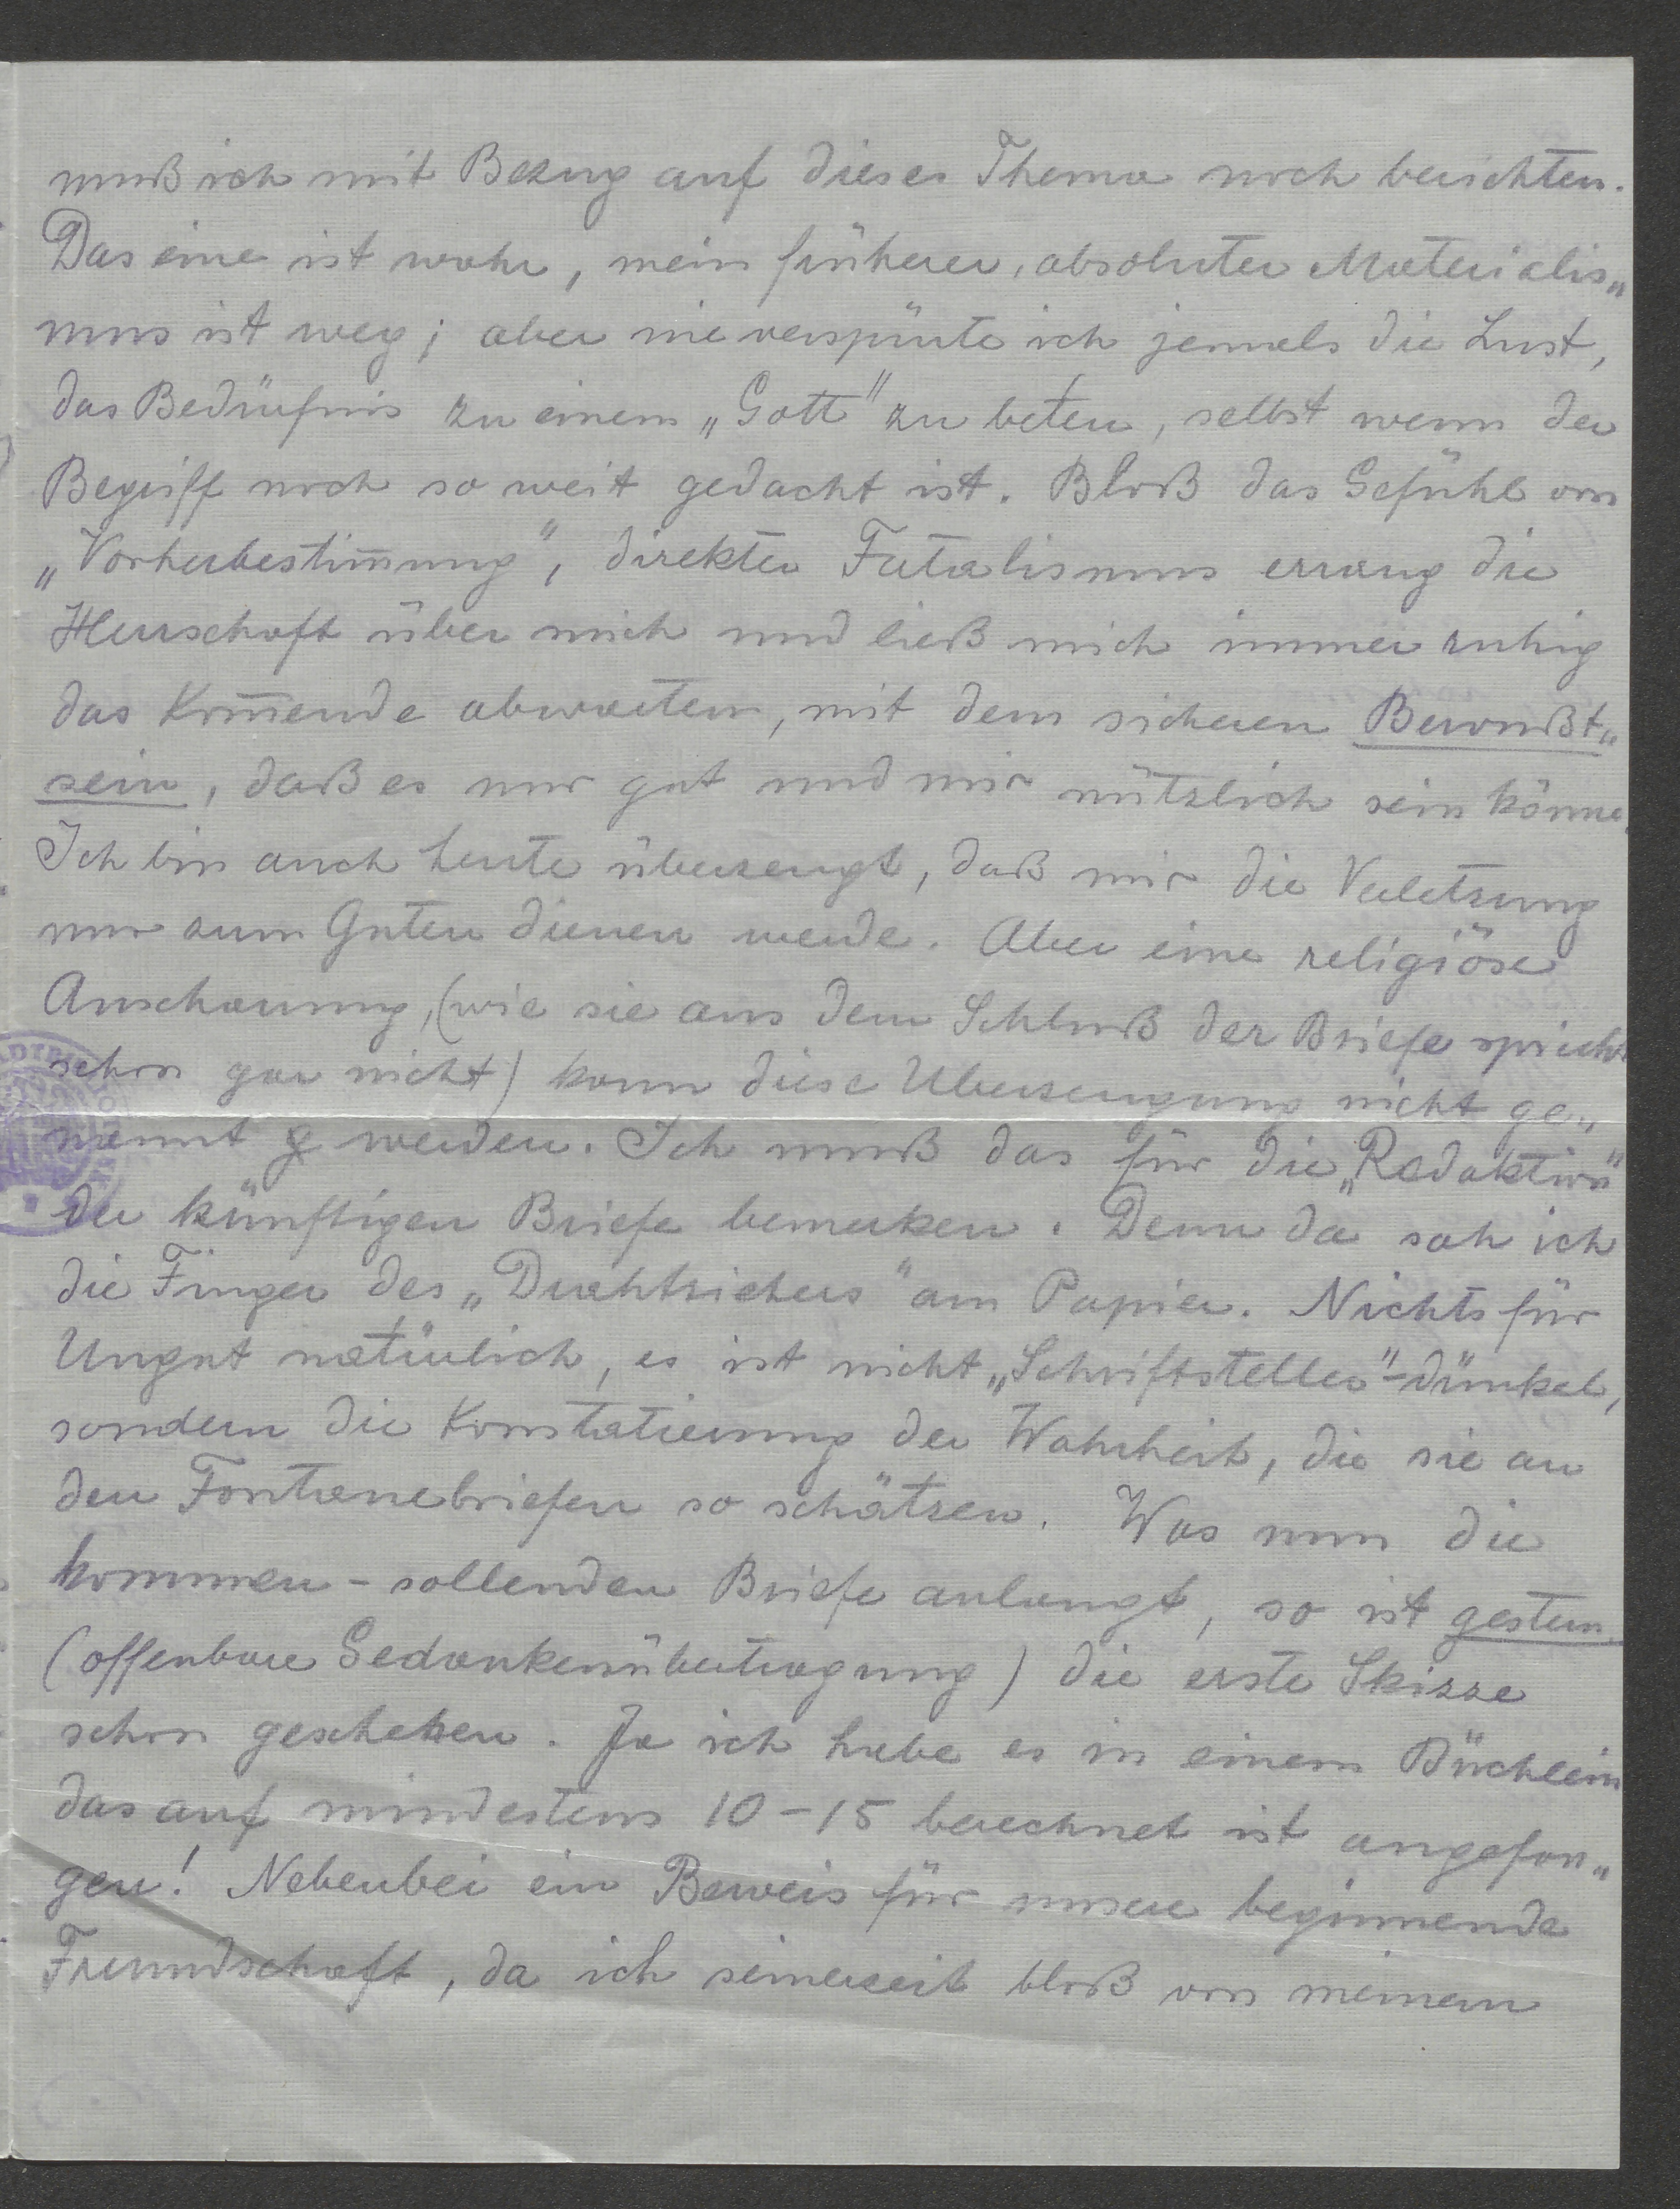 muß ich mit Bezug auf dieses Thema noch berichten.
Das eine ist wahr, mein früherer, absoluter Materialis„
mus ist weg; aber nie verspürte ich jemals die Lust,
das Bedürfnis zu einem „Gott" zu beten, selbst wenn der
Begriff noch so weit gedacht ist. Bloß das Gefühl von
„Vorherbestim̄ung", direkter Fatalismus errang die
Herrschaft über mich und ließ mich immer ruhig
das Kom̄ende abwarten, mit dem sicheren Bewußt„
sein, daß es nur gut und mir nützlich sein könne.
Ich bin auch heute überzeugt, daß mir die Verletzung
nur zum Guten dienen werde. Aber eine religiöse
Anschauung, (wie sie aus dem Schluß der Briefe spricht
schon gar nicht) kann diese Überzeugung nicht ge„
nannt werden. Ich muß das für die „Redaktion"
der künftigen Briefe bemerken. Denn da sah ich
die Finger des „Drahtziehers" am Papier. Nichts für
Ungut natürlich, es ist nicht „Schriftsteller"-dünkel,
sondern die Konstatierung der Wahrheit, die sie an
den Fontanebriefen so schätzen. Was nun die
kommen-sollenden Briefe anlangt, so ist gestern
(offenbare Gedankenübertragung) die erste Skizze
schon geschehen. Ja ich habe es in einem Büchlein
das auf mindestens 10-15 berechnet ist angefan„
gen! Nebenbei ein Beweis für unsere beginnende
Freundschaft, da ich seinerzeit bloß von meinem